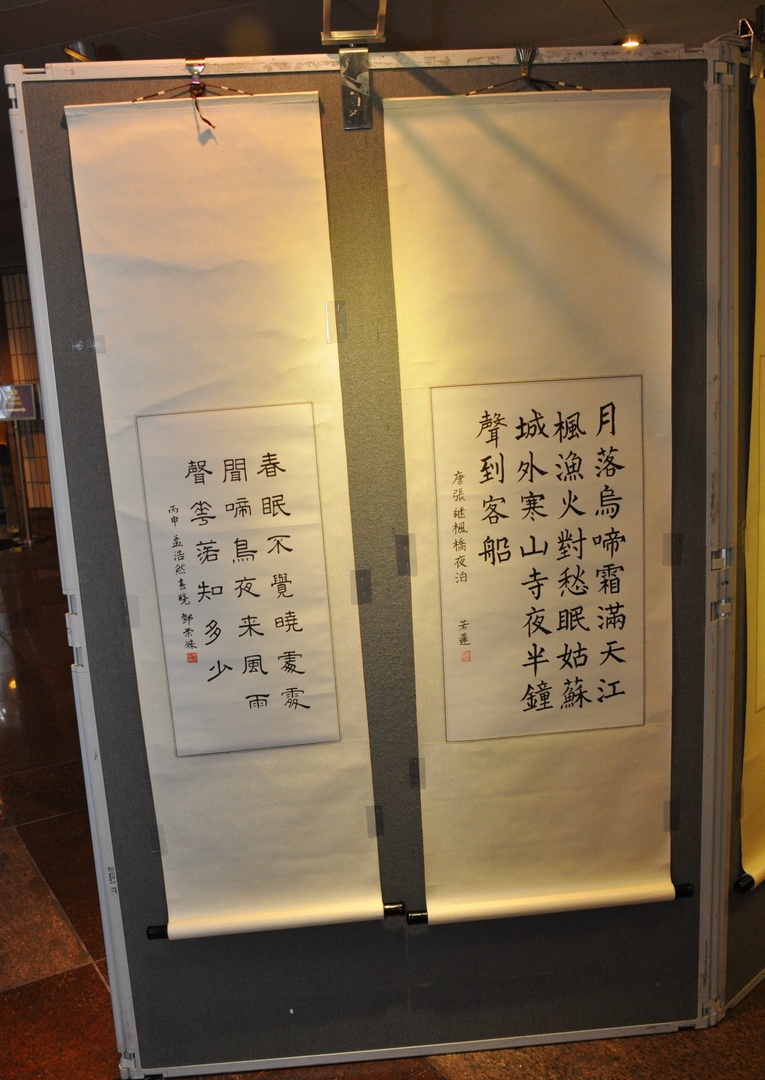 月落烏啼霜滿天江
楓漁火對愁眠姑蘇
城外寒山寺夜半鐘
聲到客船
唐張继楓橋夜泊 若蓮
春眠不覺曉處處
聞啼鳥夜来風雨
聲花落知多少
丙申 孟浩然春曉